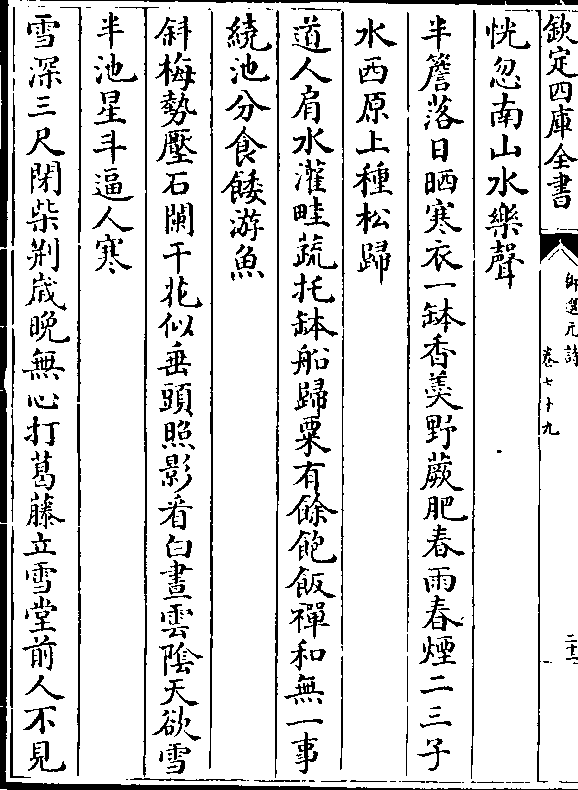 欽定四庫全書
御選元詩
卷七十九
二十二
恍忽南山水樂聲
半簷落日晒寒衣一缽香羹野蕨肥春雨春煙二三子
水西原上種松歸
道人肩水灌畦蔬托缽船歸粟有餘飽飯禪和無一事
繞池分食餧游魚
斜梅勢壓石闌干花似垂頭照影看白晝雲陰天欲雪
半池星斗逼人寒
雪深三尺閉柴荆歲晚無心打葛藤立雪堂前人不見